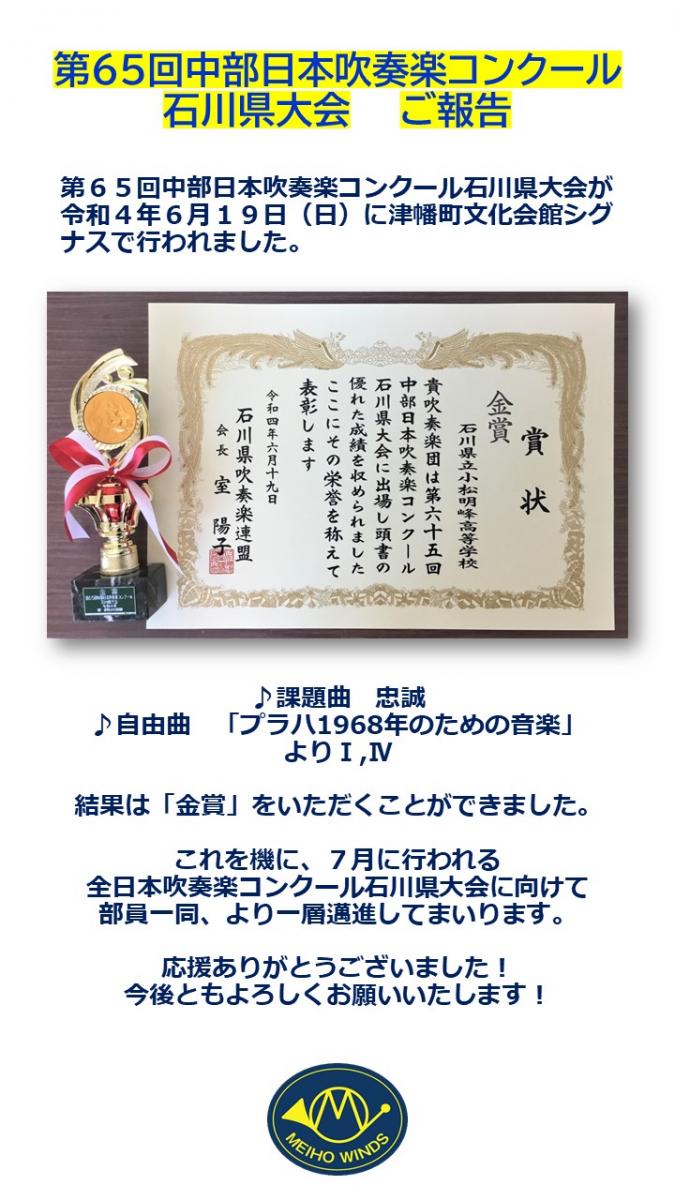 第65回中部日本吹奏楽コンクール
石川県大会　ご報告
第６５回中部日本吹奏楽コンクール石川県大会が
令和４年６月１９日（日）に津幡町文化会館シグ
ナスで行われました。
賞状
金賞
石川県立小松明峰高等学校
貴吹奏楽団は第六十五回
中部日本吹奏楽コンクール
石川県大会に出場し頭書の
優れた成績を収められました
ここにその栄誉を称えて
表彰します
令和四年六月十九日
石川県吹奏楽連盟
会長　室　陽子
♪課題曲　忠誠
♪自由曲　「プラハ1968年のための音楽」
よりⅠ,Ⅳ
結果は「金賞」をいただくことができました。
これを機に、７月に行われる
全日本吹奏楽コンクール石川県大会に向けて
部員一同、より一層邁進してまいります。
応援ありがとうございました！
今後ともよろしくお願いいたします！
MEIHO WINDS